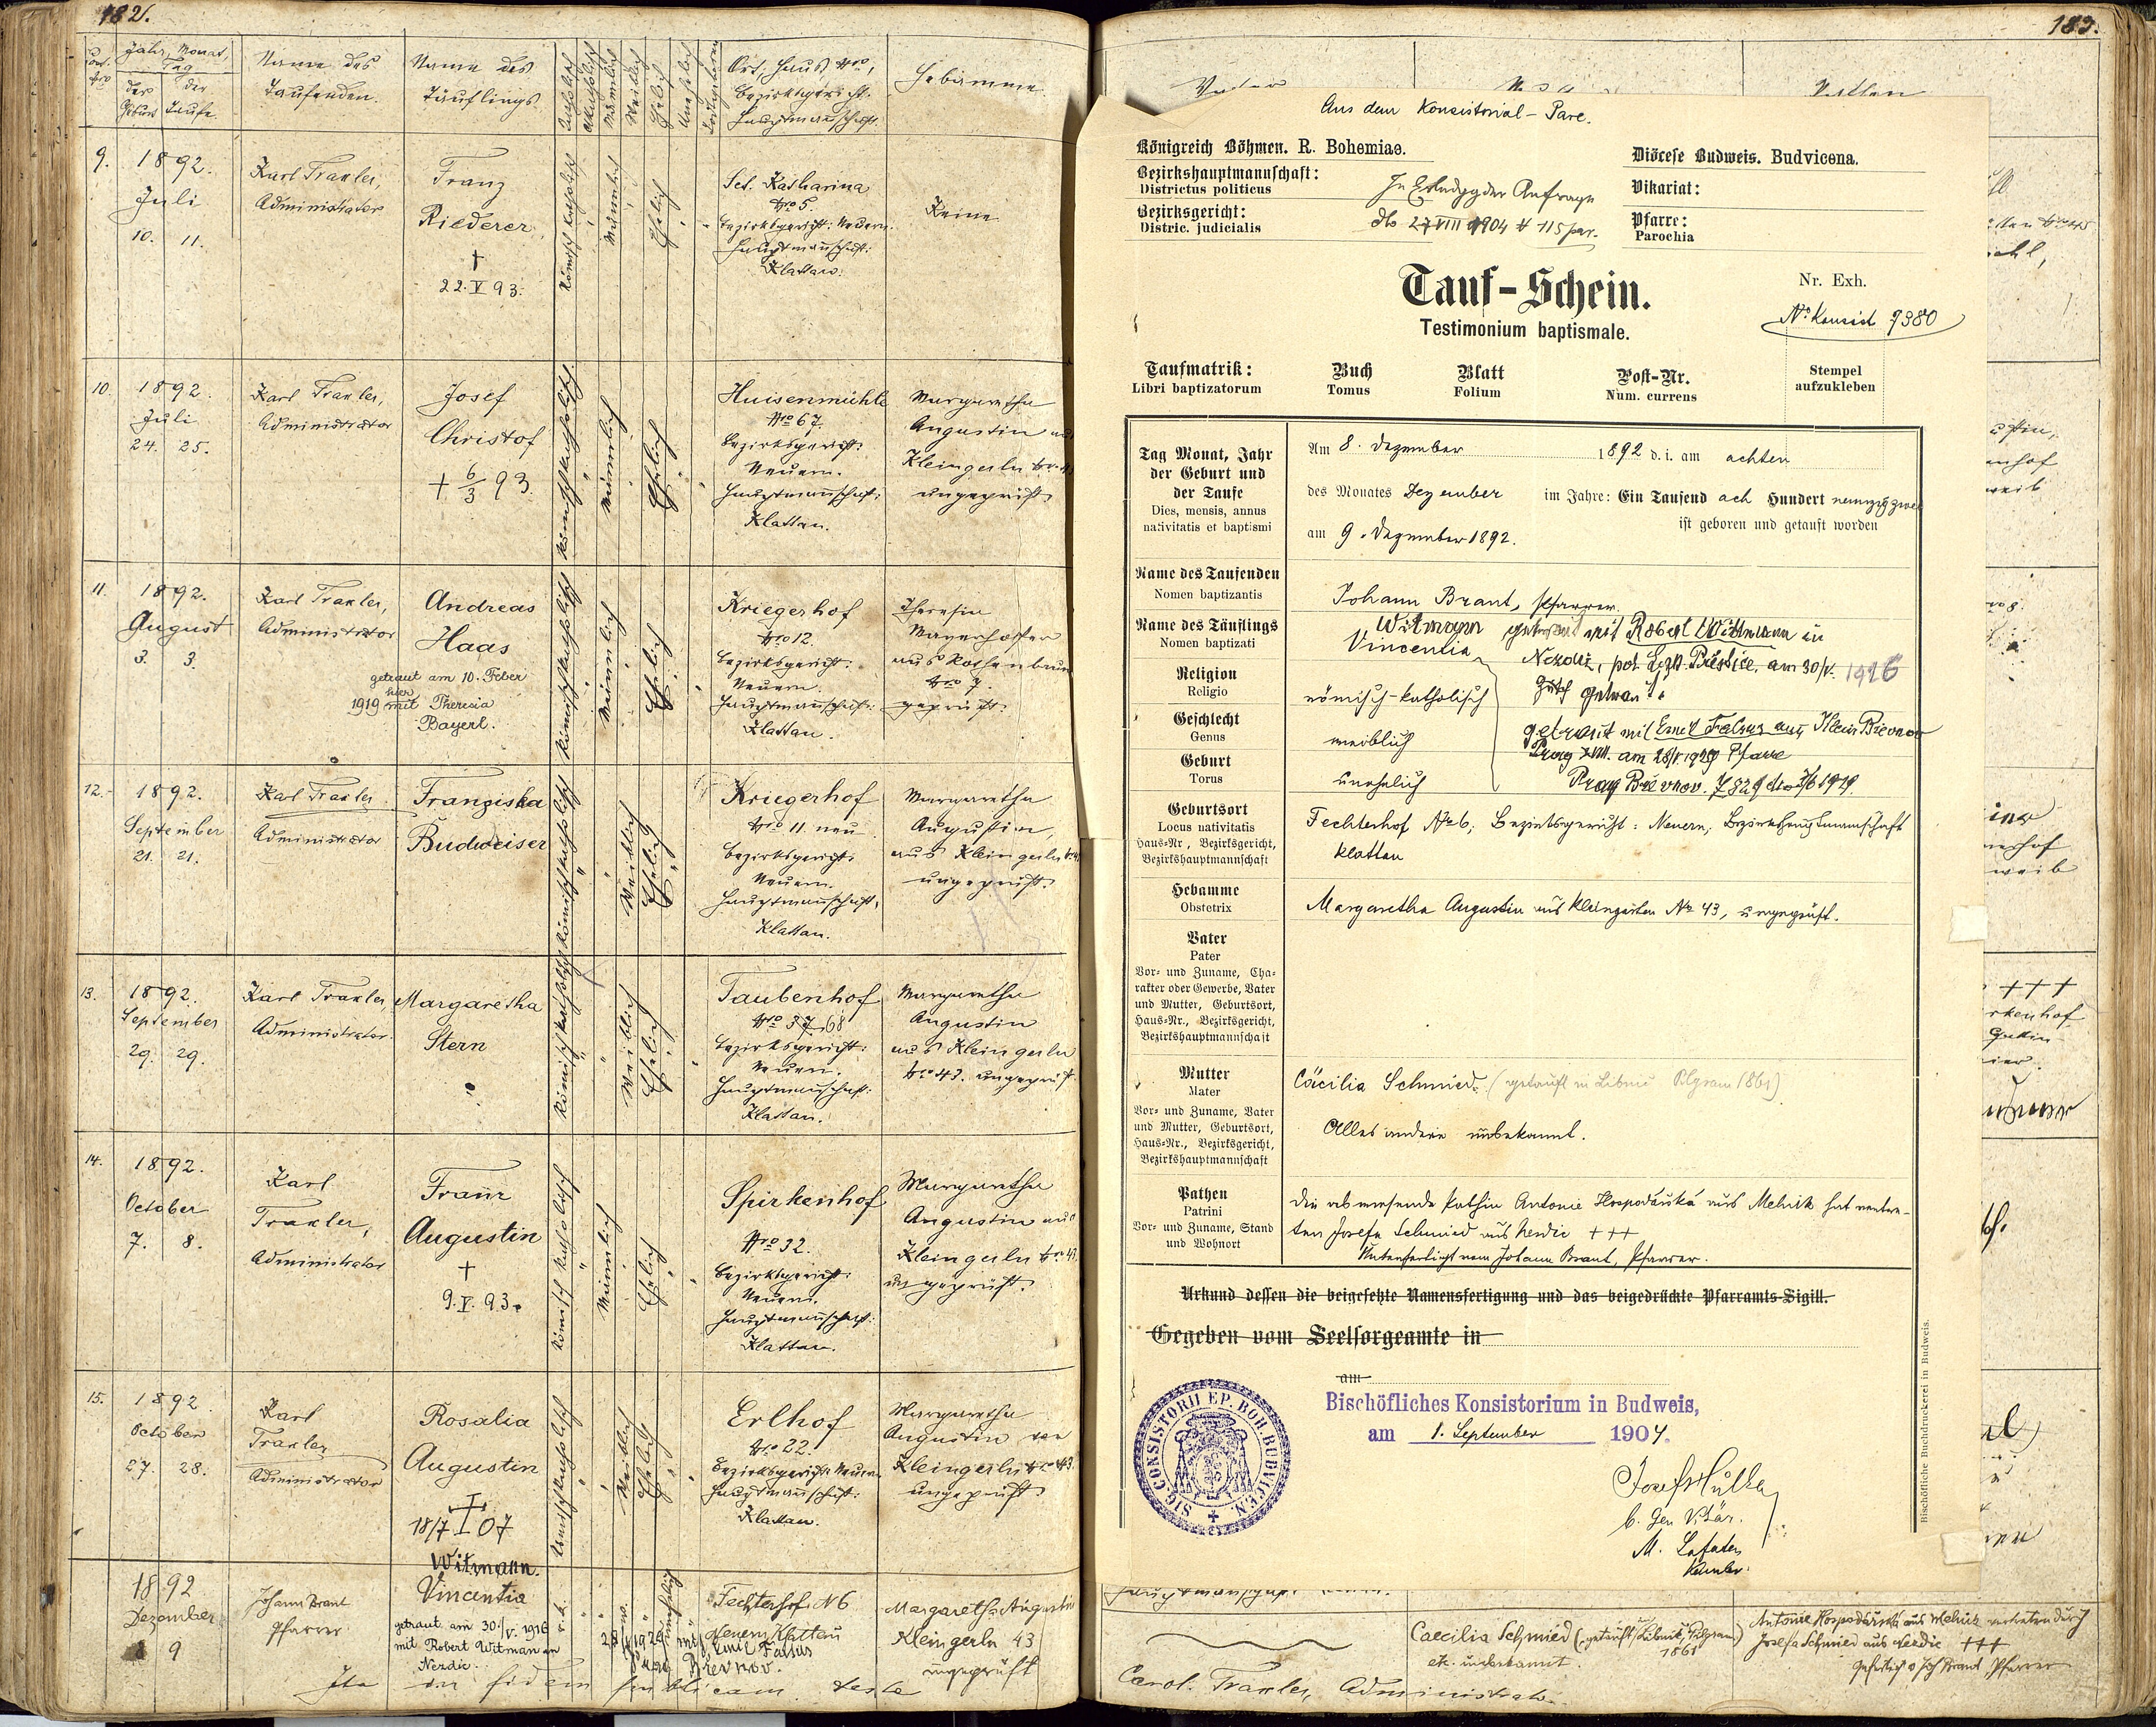 182.
Jahr, Monat,
Tag
der Geburt
der Taufe
Name des
Taufenden.
Name des
Täuflings
Katholisch
Akatholisch
Männlich
Weiblich
Ehelich
Unehelich
Ort, Haus Nro,
Bezirksgericht.
Hauptmannschaft.
Hebamme
9.
1892.
Juli
10. 11.
Karl Traxler,
Administrator
Franz
Riederer
†
22. V 93.
Römisch katholisch
Männlich
Ehelich
Set. Katharina
Nro 5.
Bezirksgericht: Neuern.
Hauptmannschaft:
Klattau.
Keine
10.
1892.
Juli
24. 25.
Karl Traxler,
Administrator
Josef
Christof
+ 6/3 93.
Römisch katholisch
Männlich
Ehelich
Huisenmühle
Nro 67.
Bezirksgericht:
Neuern.
Hauptmannschaft:
Klattau.
Margaretha
Augustin aus
Kleingerln
ungeprüft
11.
1892.
August
3. 3.
Karl Traxler,
Administrator
Andreas
Haas
getraut am 10. Feber
hier
1919 mit Theresia
Bayerl.
Römisch katholisch
Männlich
Ehelich
Kriegerhof
Nro 12.
Bezirksgericht:
Neuern.
Hauptmannschaft:
Klattau.
Theresia
Mayerhofer
aus Rothenbaum
Nro 7.
geprüft.
12.
1892.
September
21. 21.
Karl Traxler
Administrator
Franziska
Budweiser
Römisch katholisch
Weiblich
Ehelich
Kriegerhof
Nro 11 neu
Bezirksgericht:
Neuern.
Hauptmannschaft,
Klattau.
Margaretha
Augustin,
aus Kleingerln
ungeprüft.
13.
1892.
September
29. 29.
Karl Traxler,
Administrator.
Margaretha
Stern
Römisch katholisch
Weiblich
Ehelich
Taubenhof
Nro 37 68
Bezirksgericht:
Neuern.
Hauptmannschaft:
Klattau.
Margaretha
Augustin
aus Kleingerln
Nro 43. ungeprüft
14.
1892.
October
7. 8.
Karl
Traxler,
Administrator
Franz
Augustin
†
9. V. 93.
Römisch katholisch
Männlich
Ehelich
Spirkenhof
Nro 32.
Bezirksgericht:
Neuern.
Hauptmannschaft:
Klattau.
Margaretha
Augustin aus
Kleingerln Nro 43.
ungeprüft.
15.
1892
October
27. 28.
Karl
Traxler
Administrator
Rosalia
Augustin
†
18/7 07
Römisch katholisch
Weiblich
Ehelich
Erlhof
Nro 22.
Bezirksgericht Neuern
Hauptmannschaft:
Klattau.
Margaretha
Augustin von
Kleingerln Nro 43.
ungeprüft.
1892
Dezember
8 9
Johann Brant
Pfarrer
Witmann.
Vincentia
getraut am 30./V. 1916
mit Robert Witmann in
Nezdic.
r. k.
w.
unehelich
Fechterhof N 6
Neuern Klattau
mit Emil Falsus
Břevnov.
Margaretha Augustin
Kleingerln 43
ungeprüft
Ita in fidem publicam teste
183.
Vater
Aus dem Konsistorial-Pare.
Königreich Böhmen. R. Bohemiae.
Diöcese Budweis. Budvicena.
Bezirkshauptmannschaft:
Districtus politicus
In Erledgg der Anfrage
Vikariat:
Bezirksgericht:
Distric. judicialis
dto 27 VIII 1904 # 115 par.
Pfarre:
Parochia
Tauf-Schein.
Testimonium baptismale.
Nr. Exh.
No Konsist 7380
Taufmatrik:
Libri baptizatorum
Buch
Tomus
Blatt
Folium
Post-Nr.
Num. currens
Stempel
aufzukleben
Tag Monat, Jahr
der Geburt und
der Taufe
Dies, mensis, annus
nativitatis et baptismi
Am 8. Dezember 1892 d. i. am achten
des Monates Dezember im Jahre: Ein Tausend ach Hundert neunzig zwei
ist geboren und getauft worden
am 9. Dezember 1892.
Name des Taufenden
Nomen baptizantis
Johann Brant, Pfarrer.
Name des Täuflings
Nomen baptizati
Witmann
Vincentia
getraut mit Robert Wittmann in
Nezdic, pol. Bez. Přestice, am 30/V. 1916
getraut mit Emil Falsus aus Klein Břevnov
Prag XVIII. am 28/V. 1929 Pfarre
Prag Břevnov.
Religion
Religio
römisch-katholisch
Geschlecht
Genus
weiblich
Geburt
Torus
unehelich
Geburtsort
Locus nativitatis
Haus-Nr, Bezirksgericht,
Bezirkshauptmannschaft
Fechterhof No 6; Bezirksgericht: Neuern; Bezirkshauptmannschaft
Klattau
Hebamme
Obstetrix
Margaretha Augustin aus Kleingerln No 43, ungeprüft.
Vater
Pater
Vor- und Zuname, Cha-
rakter oder Gewerbe, Vater
und Mutter, Geburtsort,
Haus-Nr., Bezirksgericht,
Bezirkshauptmannschaft
Mutter
Mater
Vor- und Zuname, Vater
und Mutter, Geburtsort,
Haus-Nr., Bezirksgericht,
Bezirkshauptmannschaft
Cäcilia Schmied. (getauft in Libnic Pilgram 1861)
Alles andere unbekannt.
Pathen
Patrini
Vor- und Zuname, Stand
und Wohnort
Die abwesende Pathin Antonie Hospodářská aus Melnik hat vertre-
ten Josefa Schmied aus Nezdic +++
Unterfertigt von Johann Brant, Pfarrer.
Urkund dessen die beigesetzte Namensfertigung und das beigedrückte Pfarramts-Sigill.
Gegeben vom Seelsorgeamte in
am
Bischöfliches Konsistorium in Budweis,
am 1. September 1904.
SIG. CONSISTORII EP. BOH. BUDVICEN.
Josef Hulka
b. Gen Vikär.
Bischöfliche Buchdruckerei in Budweis.
Caecilia Schmied (getauft Libnic, Pilgram)
1861
etc. unbekannt.
Antonie Hospodářská aus Melnik vertreten durch
Josefa Schmied aus Nezdic +++
Gefertigt v Joh Brant, Pfarrer
Carol. Traxler, Administrator.